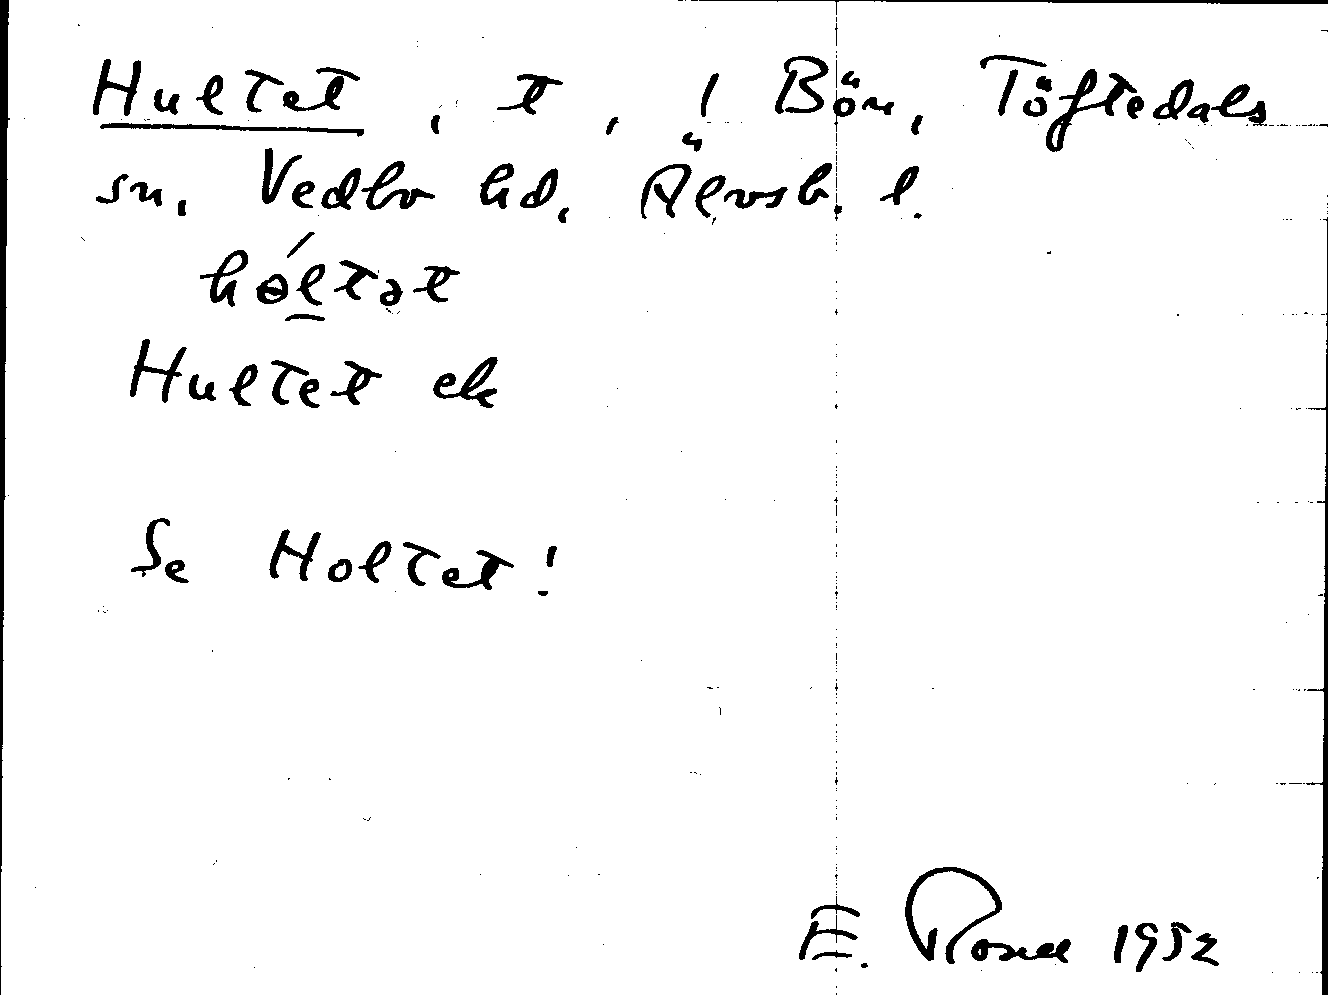 Hultet, t, 1 Bön, Töftedals
sn, Vedbo hd, Älvsb. l.
hɵ́ltət
Hultet ek
Se Holtet!
E. Rosell 1952